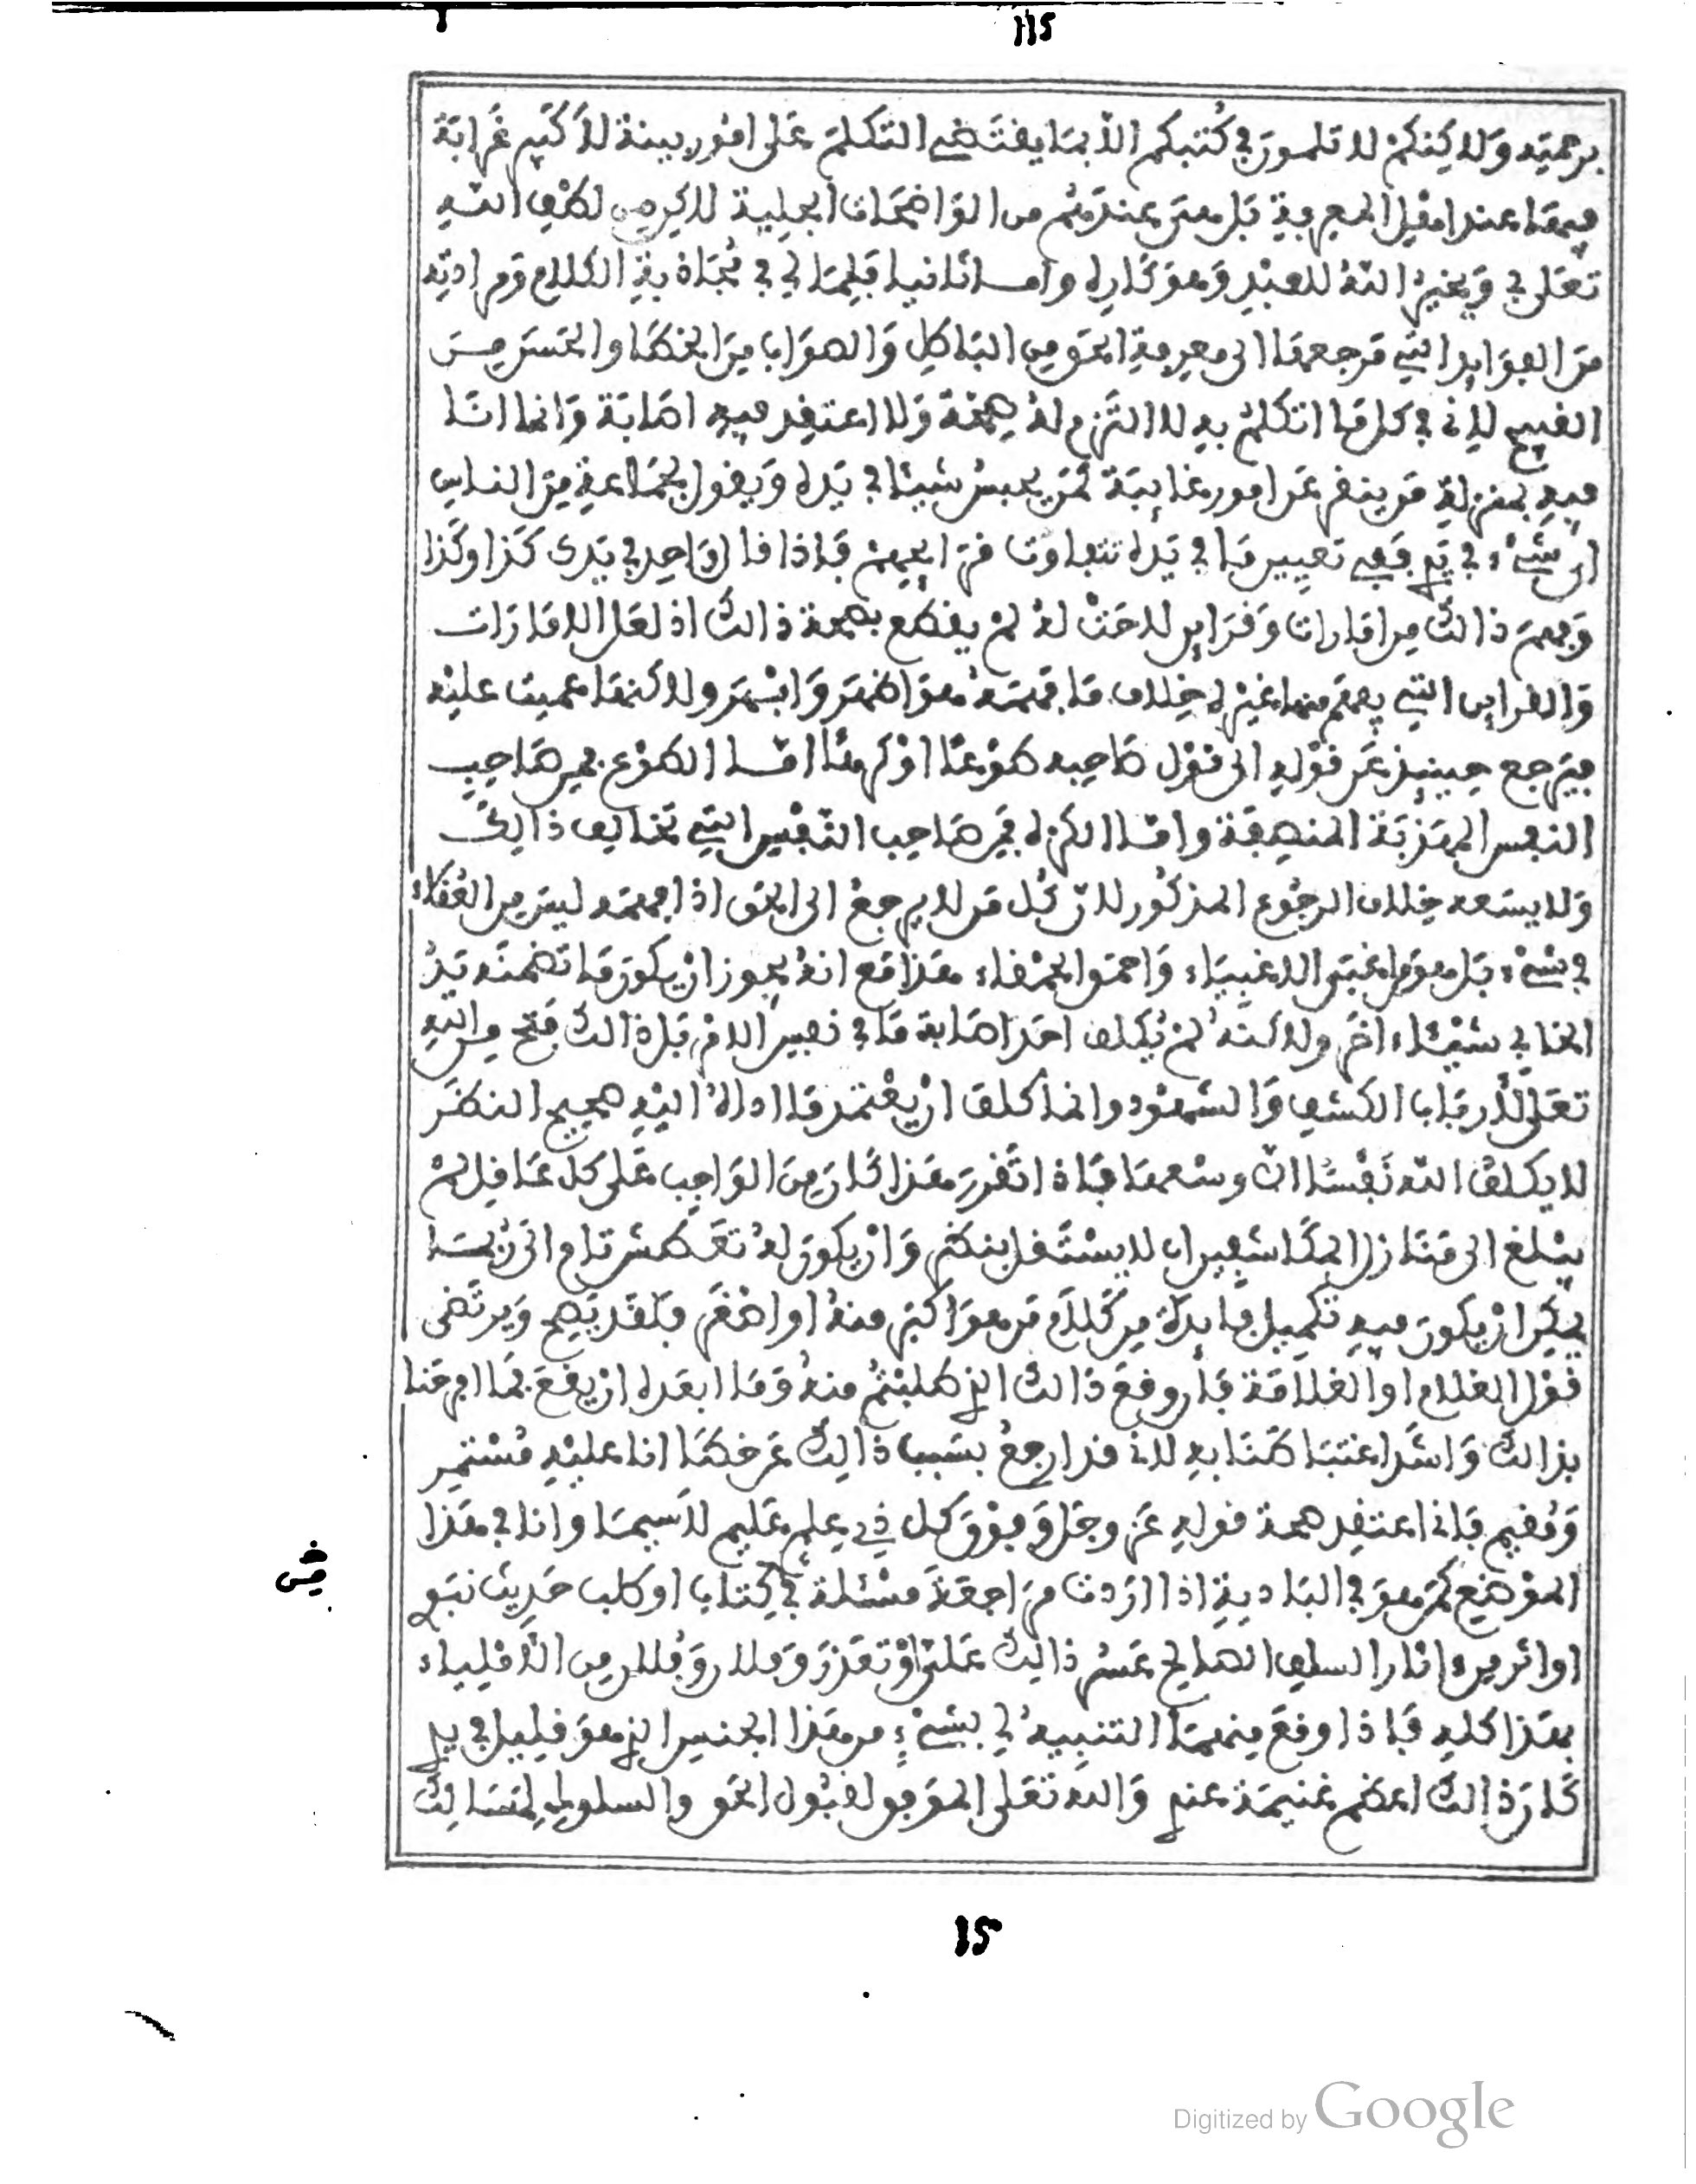 115
برحمته ولاكنكم لا تلمون في كتبكم الا بما يقتضي التكلم على امور بينة لا كبير غرابة
فيها عند اهل المعرفة بل هي عندهم من الواضحات الجلية لاكن من لطف الله
تعلى بي ويخير الله للعبد وهو كاره واما ثانيا فلما لي في مجاذبة الكلام ومرادته
من الفوايد التي مرجعها الى معرفة الحق من الباطل والصواب من الخطا والحسن من
القبيح لاني في كل ما اتكلم به لا التزم له صحة ولا اعتقد فيه اصابة وانما انا
فيه بمنزلة من ينقر عن امور غايبة كمن يحبس شيئا في يده ويقول لجماعة من الناس
اي شيء في يدي ففي تعيين ما في يده تتفاوت قرايحهم فاذا قال واحد في يدك كذا وكذا
وفهم ذالك من امارات وقراين لاحت له لم يقطع بصحة ذالك اذ لعل الامارات
والقراين التي يفهم منها غيره خلاف ما فهمه هو اظهر وابهر ولاكنها عميت عليه
فيرجع حينيذ عن قوله الى قول صاحبه طوعا او كرها اما الطوع فمن صاحب
النفس المهذبة المنصفة واما الكره فمن صاحب النفس التي تخالف ذالك
ولا يسعه خلاف الرجوع المذكور لان كل من لا يرجع الى الحق اذا فهمه ليس من العقلاء
في شيء بل هو من اغبى الاغبياء واحمق الحمقاء هذا مع انه يجوز ان يكون ما تضمنه يد
الخابي شيئاء اخر ولاكنه لم يكلف احد اصابة ما في نفس الامر فان ذالك فتح من الله
تعلى لارباب الكشف والشهود وانما كلف ان يعتمد ما اداه اليه صحيح النظر
لا يكلف الله نفسا الا وسعها فاذا تقرر هذا كان من الواجب على كل عاقل لم
يبلغ الى منازل المكاشفين ان لا يستقل بنظره وان يكون له تعطش تام الى ما
يمكن ان يكون فيه تكميل ما بدا من كلام من هو اكبر منه او اصغر فلقد يصح ويرتضى
قول الغلام او الغلامة فان وقع ذالك الذي طلبتم منه وما ابعده ان يقع فما افرحنا
بذالك واشد اغتباطنا به لاني قد ارجع بسبب ذالك عن خطا انا عليه مستمر
ومقيم فاني اعتقد صحة قوله عز وجل وفوق كل ذي علم عليم لا سيما وانا في هذا
الموضع كمن هو في البادية اذا اردت مراجعة مسئلة في كتاب او طلب حديث نبوي
او اثر من ءاثار السلف الصالح عسر ذالك علي او تعذر وملان وفلان من الاملياء
بهذا كله فاذا وقع منهما التنبيه لي بشيء من هذا الجنس الذي هو قليل في يدي
كان ذالك اعظم غنيمة عندي والله تعلى الموفق لقبول الحق والسلوك لمسالك
15
Digitized by Google